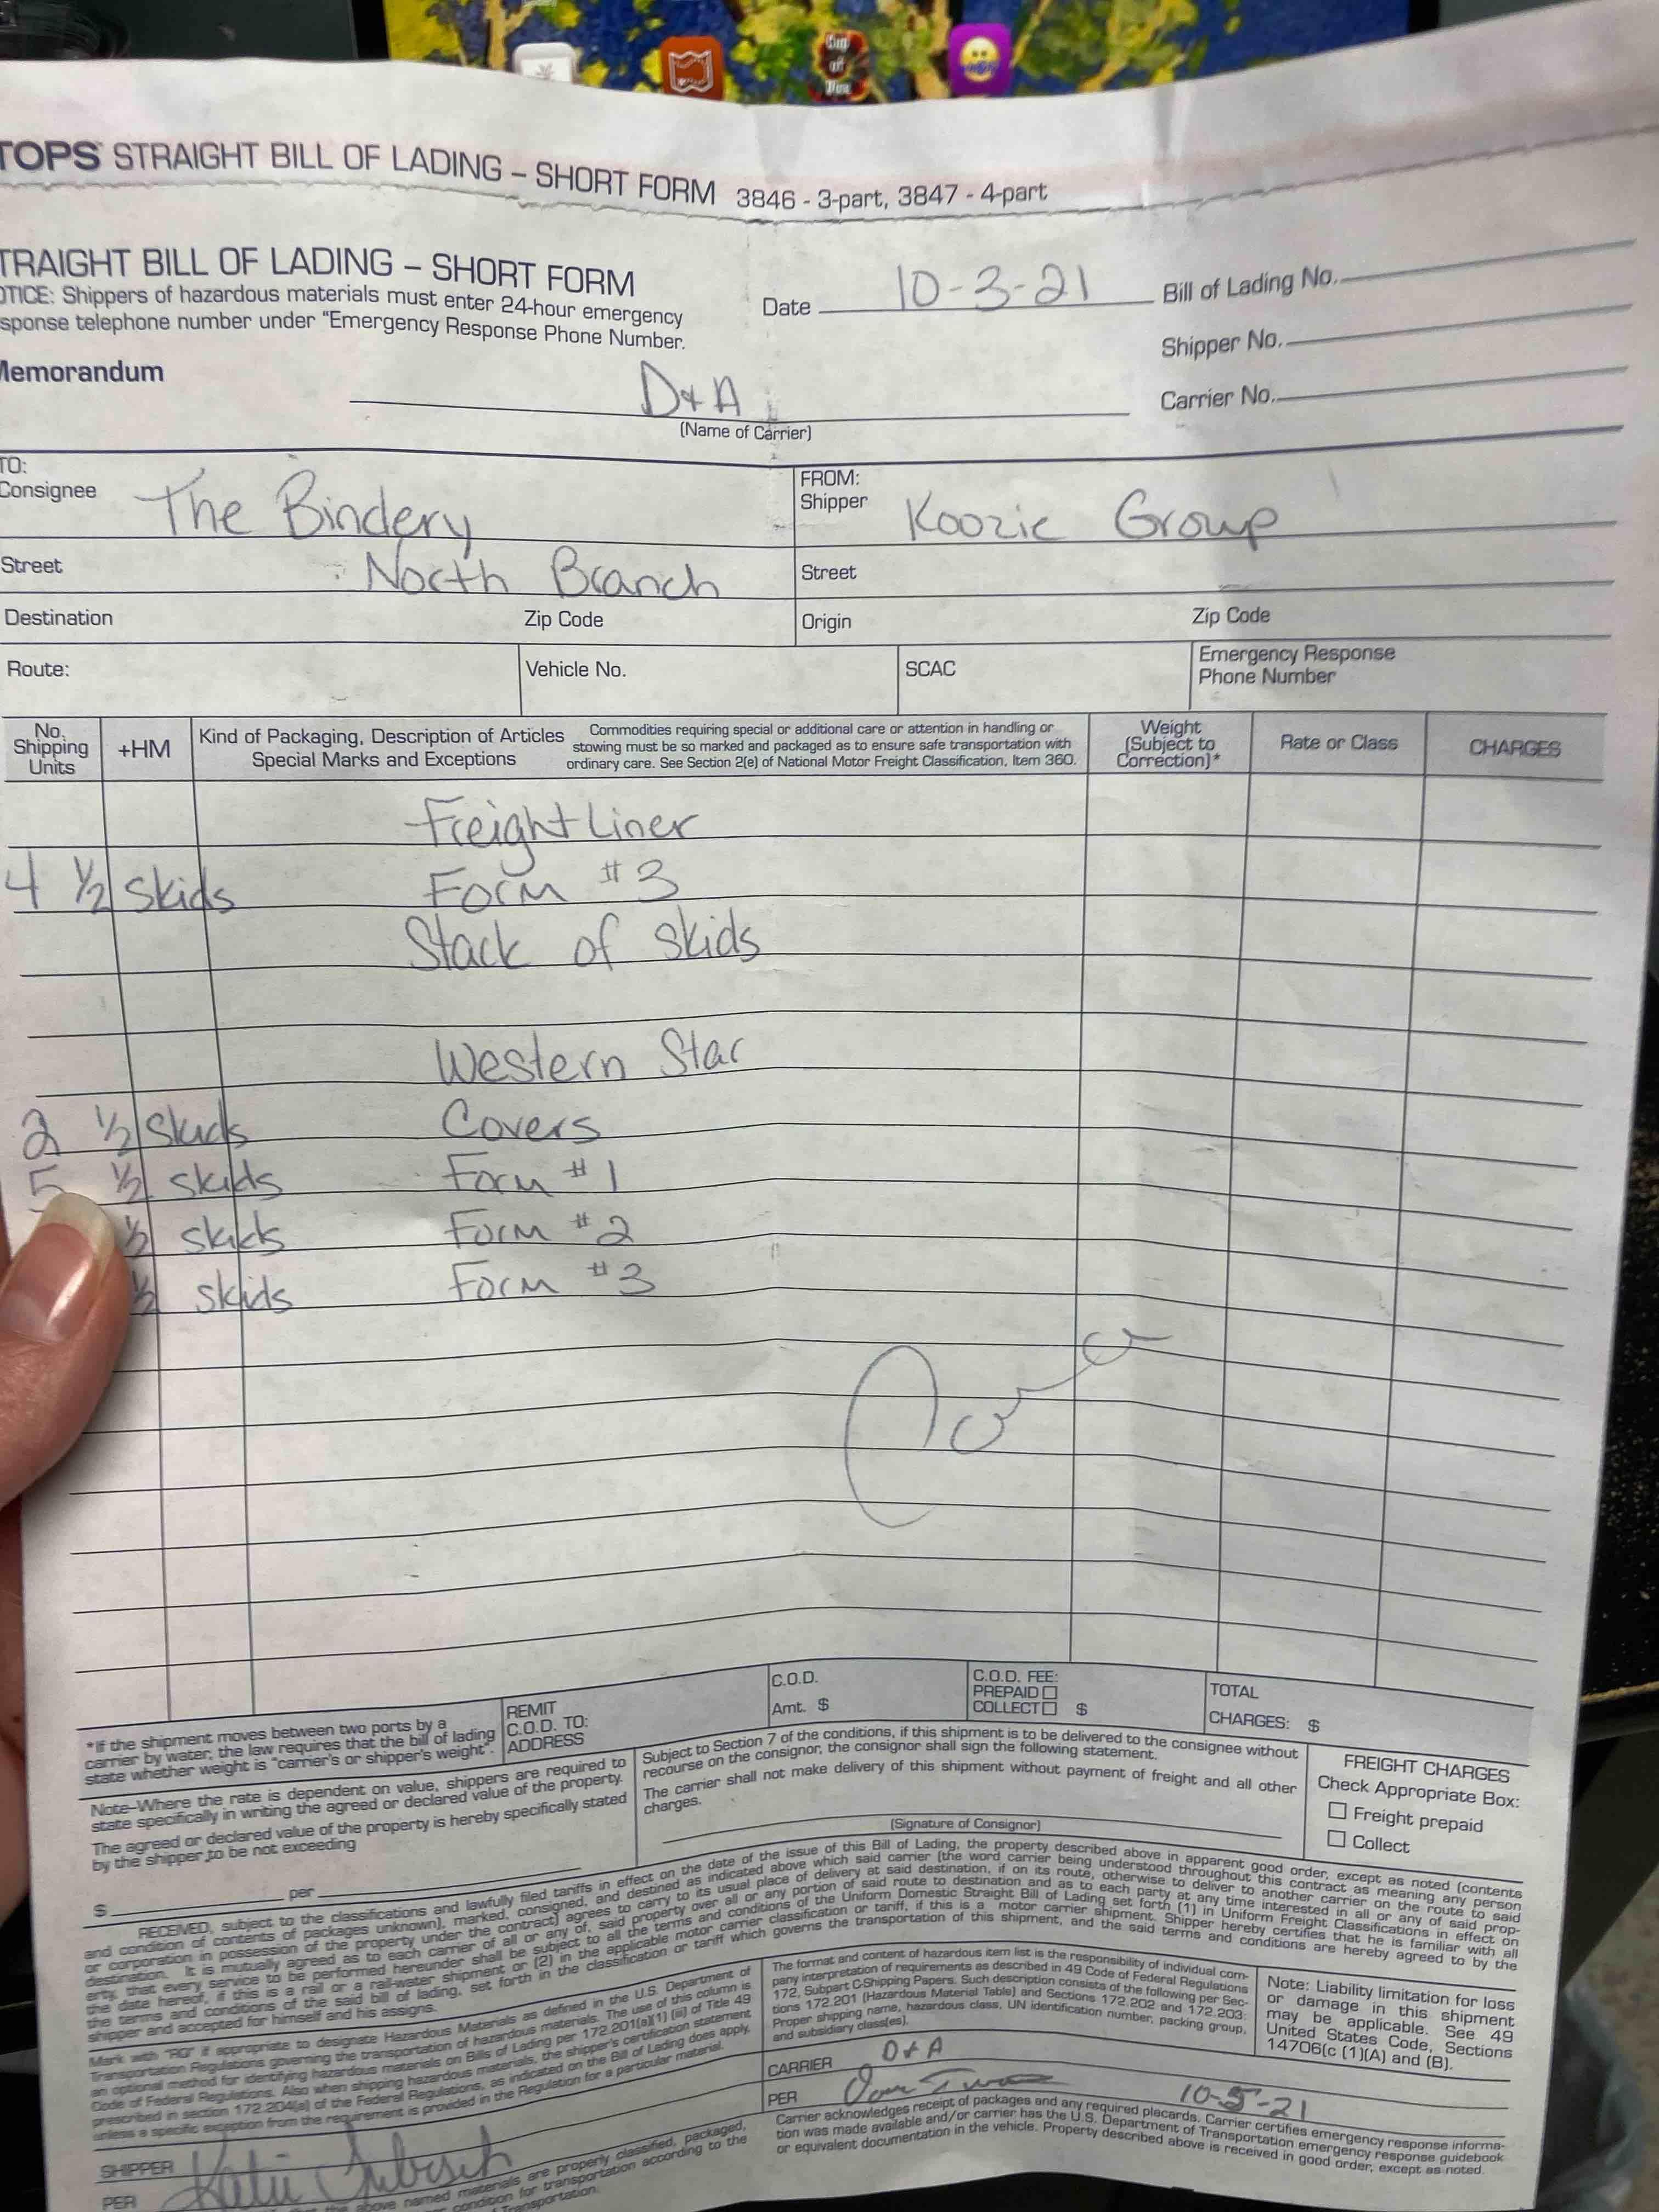 TOPS STRAIGHT BILL OF LADING – SHORT FORM 3846 - 3-part, 3847 - 4-part
TRAIGHT BILL OF LADING – SHORT FORM
OTICE: Shippers of hazardous materials must enter 24-hour emergency
sponse telephone number under "Emergency Response Phone Number.
Date 10-3-21
Bill of Lading No.
Shipper No.
Carrier No.
Memorandum
D+A
(Name of Carrier)
TO:
Consignee The Bindery
FROM:
Shipper Koozie Group
Street North Branch
Street
Destination Zip Code
Origin Zip Code
Route: Vehicle No. SCAC Emergency Response
Phone Number
No.
Shipping
Units
+HM
Kind of Packaging, Description of Articles
Special Marks and Exceptions
Commodities requiring special or additional care or attention in handling or
stowing must be so marked and packaged as to ensure safe transportation with
ordinary care. See Section 2(e) of National Motor Freight Classification, Item 360.
Weight
(Subject to
Correction)*
Rate or Class
CHARGES
FreightLiner
4 1/2 skids Form #3
Stack of skids
Western Star
2 1/2 skids Covers
5 1/2 skids Form #1
1/2 skids Form #2
1/2 skids Form #3
*If the shipment moves between two ports by a
carrier by water, the law requires that the bill of lading
state whether weight is "carrier's or shipper's weight".
REMIT
C.O.D. TO:
ADDRESS
C.O.D.
Amt. $
C.O.D. FEE:
PREPAID
COLLECT $
TOTAL
CHARGES: $
Note–Where the rate is dependent on value, shippers are required to
state specifically in writing the agreed or declared value of the property.
The agreed or declared value of the property is hereby specifically stated
by the shipper to be not exceeding
$ per
Subject to Section 7 of the conditions, if this shipment is to be delivered to the consignee without
recourse on the consignor, the consignor shall sign the following statement.
The carrier shall not make delivery of this shipment without payment of freight and all other
charges.
(Signature of Consignor)
FREIGHT CHARGES
Check Appropriate Box:
Freight prepaid
Collect
RECEIVED, subject to the classifications and lawfully filed tariffs in effect on the date of the issue of this Bill of Lading, the property described above in apparent good order, except as noted (contents
and condition of contents of packages unknown), marked, consigned, and destined as indicated above which said carrier (the word carrier being understood throughout this contract as meaning any person
or corporation in possession of the property under the contract) agrees to carry to its usual place of delivery at said destination, if on its route, otherwise to deliver to another carrier on the route to said
destination. It is mutually agreed as to each carrier of all or any of, said property over all or any portion of said route to destination and as to each party at any time interested in all or any of said prop-
erty, that every service to be performed hereunder shall be subject to all the terms and conditions of the Uniform Domestic Straight Bill of Lading set forth (1) in Uniform Freight Classifications in effect on
the date hereof, if this is a rail or a rail-water shipment or (2) in the applicable motor carrier classification or tariff, if this is a motor carrier shipment. Shipper hereby certifies that he is familiar with all
the terms and conditions of the said bill of lading, set forth in the classification or tariff which governs the transportation of this shipment, and the said terms and conditions are hereby agreed to by the
shipper and accepted for himself and his assigns.
Mark with "RQ" if appropriate to designate Hazardous Materials as defined in the U.S. Department of
Transportation Regulations governing the transportation of hazardous materials. The use of this column is
an optional method for identifying hazardous materials on Bills of Lading per 172.201(a)(1) (iii) of Title 49
Code of Federal Regulations. Also when shipping hazardous materials, the shipper's certification statement
prescribed in section 172.204(a) of the Federal Regulations, as indicated on the Bill of Lading does apply,
unless a specific exception from the requirement is provided in the Regulation for a particular material.
The format and content of hazardous item list is the responsibility of individual com-
pany interpretation of requirements as described in 49 Code of Federal Regulations
172, Subpart C-Shipping Papers. Such description consists of the following per Sec-
tions 172.201 (Hazardous Material Table) and Sections 172.202 and 172.203:
Proper shipping name, hazardous class, UN identification number, packing group,
and subsidiary class(es).
Note: Liability limitation for loss
or damage in this shipment
may be applicable. See 49
United States Code, Sections
14706(c (1)(A) and (B).
CARRIER D+A
PER 10-5-21
Carrier acknowledges receipt of packages and any required placards. Carrier certifies emergency response informa-
tion was made available and/or carrier has the U.S. Department of Transportation emergency response guidebook
or equivalent documentation in the vehicle. Property described above is received in good order, except as noted.
SHIPPER
PER Katie
the above named materials are properly classified, packaged,
condition for transportation according to the
Transportation.